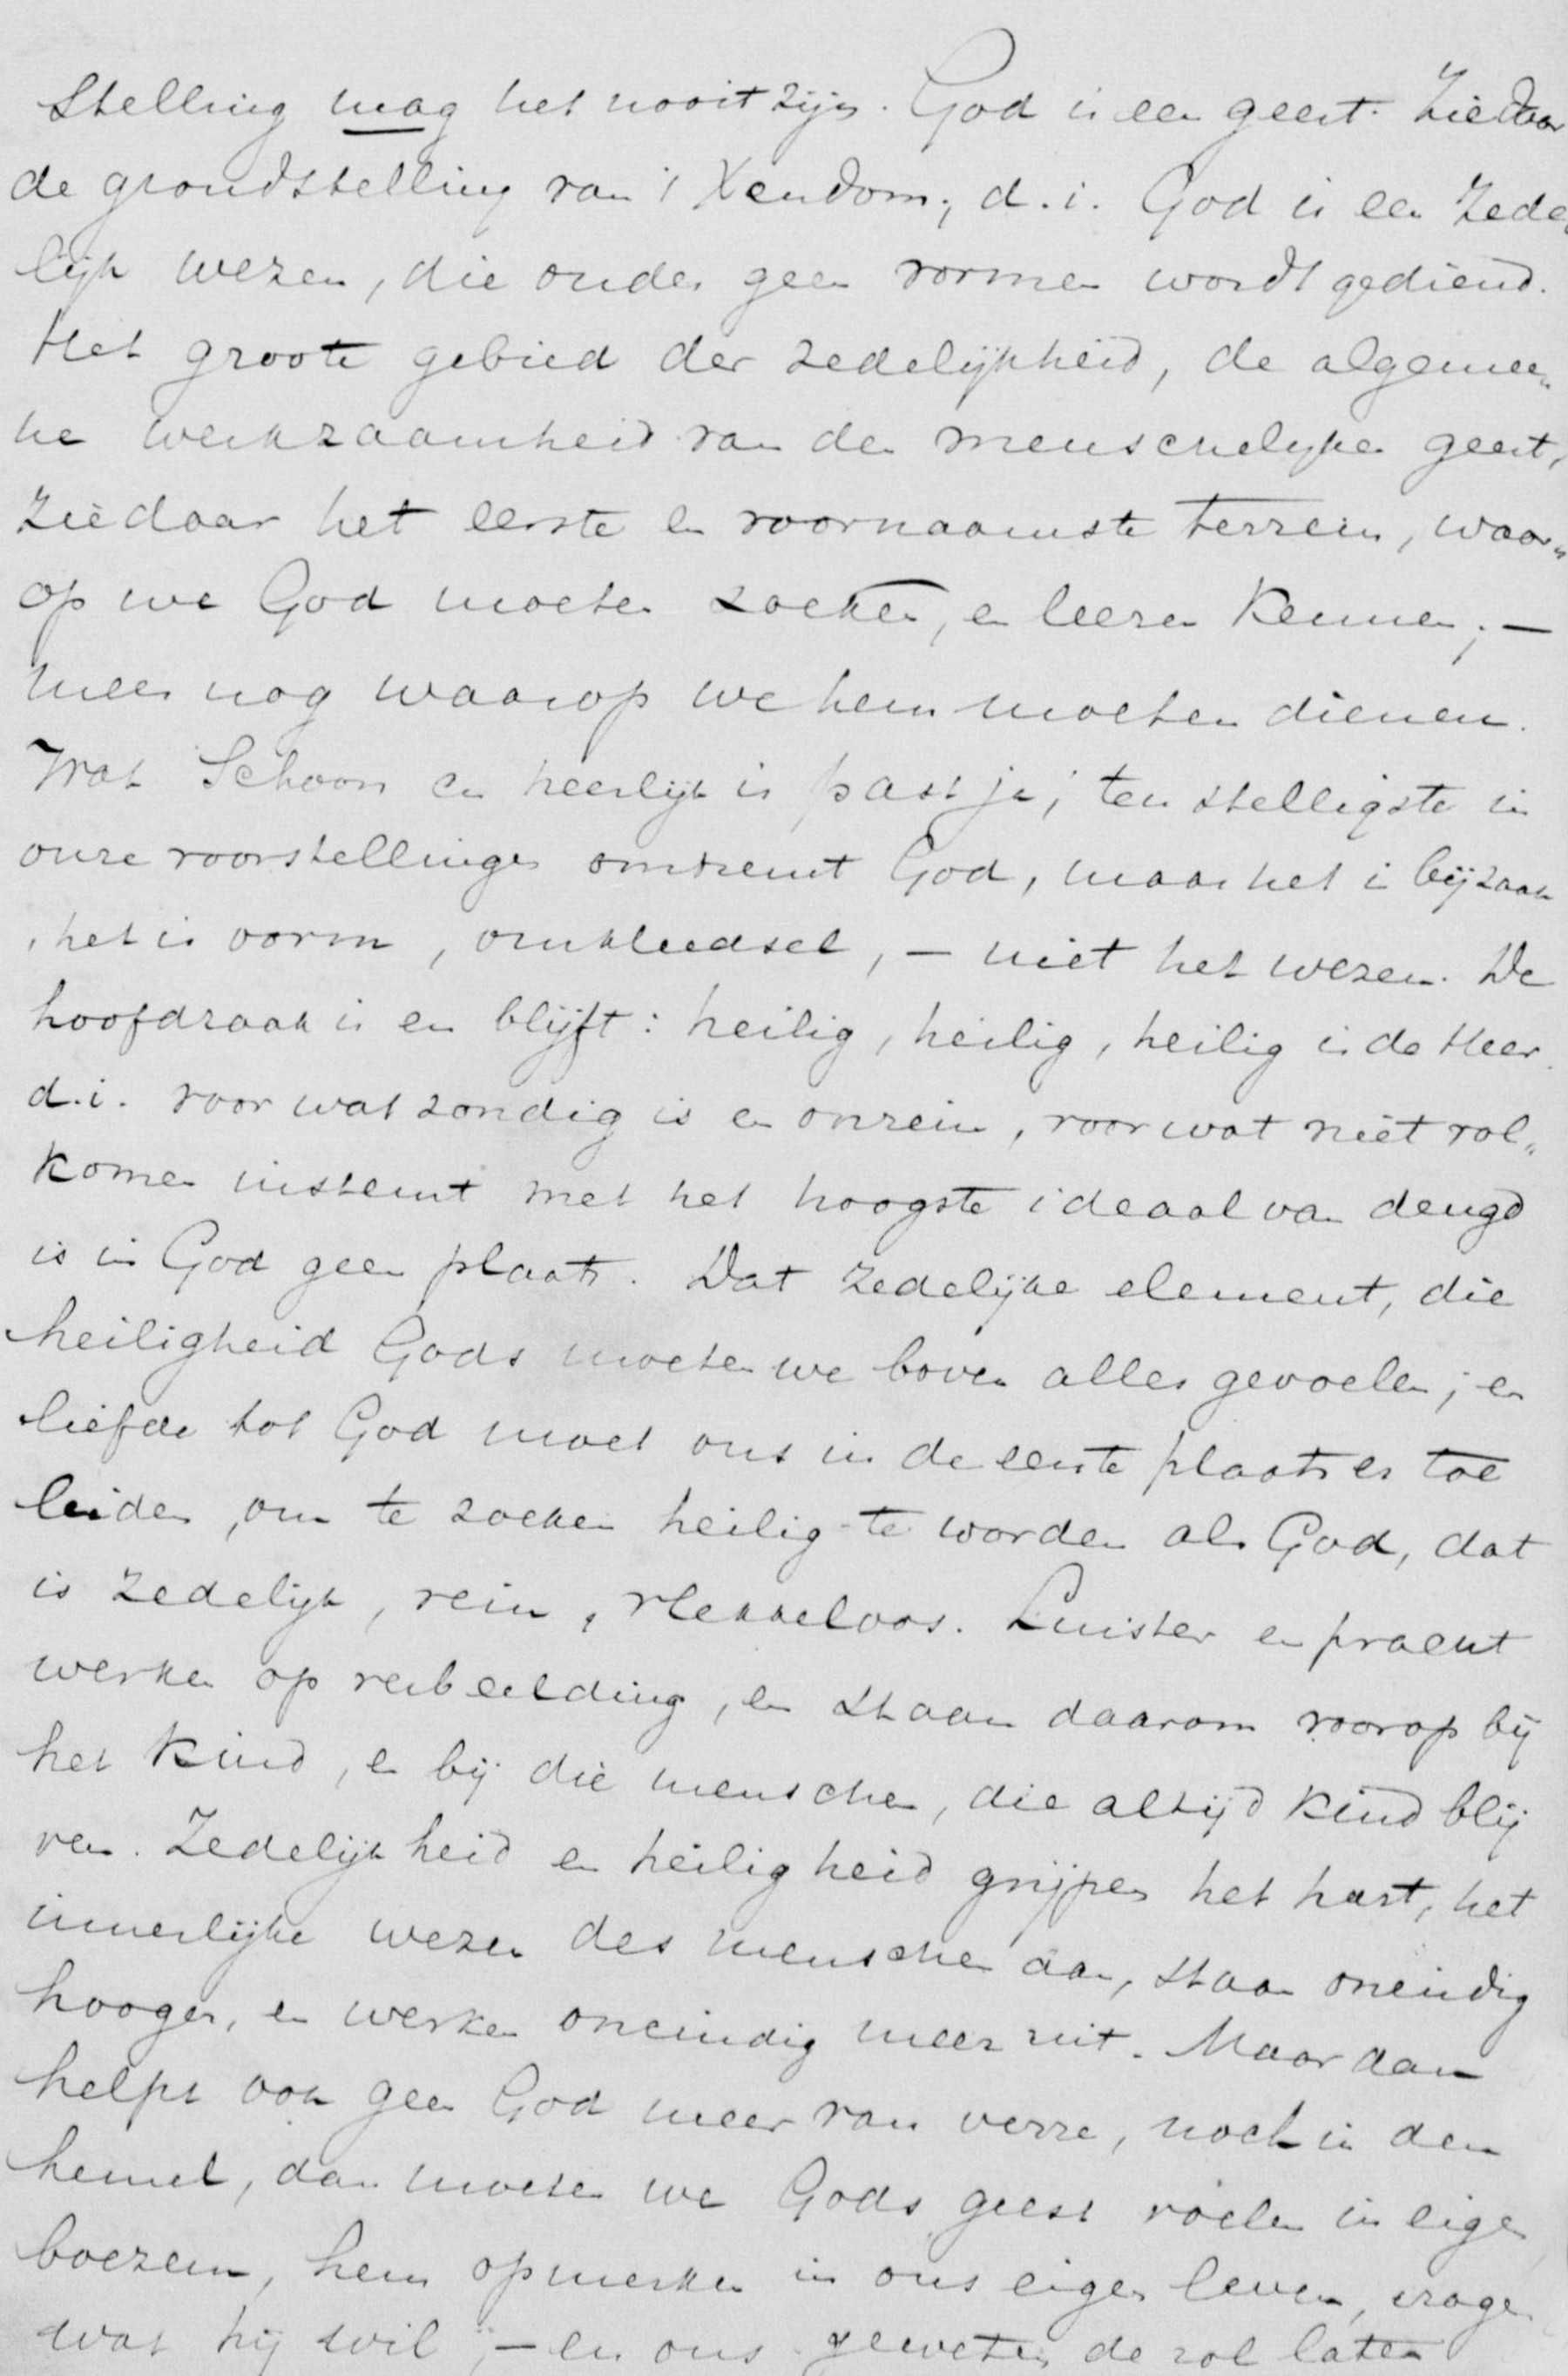 Stelling mag het nooit zijn. God is een geest. Ziedaar
de grondstelling van 't Xendom; d.i. God is een zede„
lijk wezen, die onder geen vormen wordt gediend.
Het groote gebied der zedelijkheid, de algemee„
ne werkzaamheid van den menschelijken geest,
ziedaar het eerste en voornaamste terrein, waar„
op we God moeten zoeken, en leeren kennen; —
meer nog waarop we hem moeten dienen.
Wat Schoon en heerlijk is past ja, ten stelligste in
onze voorstellingen omtrent God, maar het is bijzaak
, het is vorm, omkleedsel, — niet het wezen. De
hoofdzaak is en blijft: heilig, heilig, heilig is de Heer.
d.i. voor wat zondig is en onrein, voor wat niet vol„
komen instemt met het hoogste ideaal van deugd
is in God geen plaats. Dat zedelijke element, die
heiligheid Gods moeten we boven alles gevoelen; en
liefde tot God moet ons in de eerste plaats er toe
leiden, om te zoeken heilig te worden als God, dat
is zedelijk, rein, vlekkeloos. Luister en pracht
werken op verbeelding, en staan daarom voorop bij
het kind, en bij die menschen, die altijd kind blij
ven. Zedelijkheid en heiligheid grijpen het hart, het
innerlijke wezen des menschen aan, staan oneindig
hooger, en werken oneindig meer uit. Maar dan
helpt ook geen God meer van verre, noch in den
hemel, dan moeten we Gods geest voelen in eigen
boezem, hem opmerken in ons eigen leven, vragen
wat hij wil; — en ons geweten de rol laten